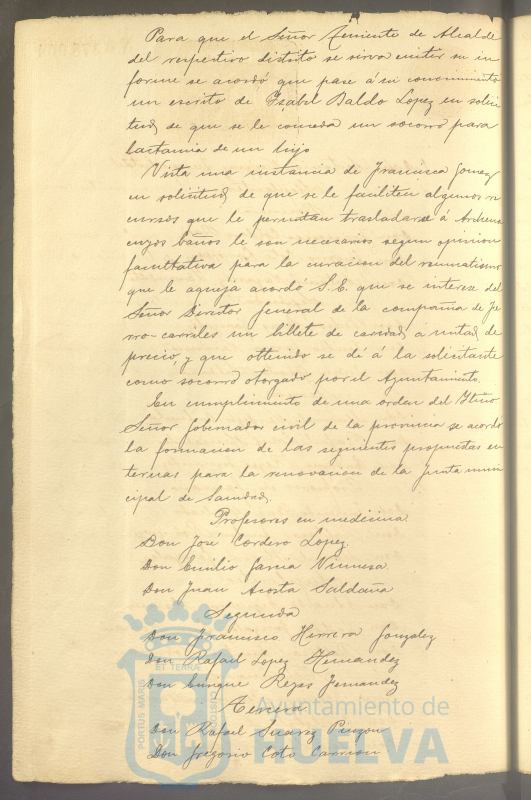 Para que el Señor Teniente de Alcalde
del respectivo distrito se sirva emitir su in
forme se acordó que pase á su conocimiento
un escrito de Isabel Baldo Lopez en solici
tud de que se le conceda un socorro para
lactancia de un hijo
Vista una instancia de Francisca Gomez
en solicitud de que se le faciliten algunos re
cursos que le permitan trasladarse á Archena
cuyos baños le son necesarios segun opinion
facultativa para la curacion del reumatismo
que le aqueja acordó S.E. que se interese del
Señor Director General de la compañia de Fe
rro-carriles un billete de caridad á mitad de
precio, y que obtenido se dé á la solicitante
como socorro otorgado por el Ayuntamiento.
En cumplimiento de una orden del Iltmo
Señor Gobernador civil de la provincia se acordó
la formacion de las siguientes propuestas en
ternas para la renovacion de la Junta muni
cipal de Sanidad.
Profesores en medicina
Don José Cordero Lopez.
Don Emilio Garcia
Don Juan Acosta Saldaña
Segunda
Don Francisco Herrera Gonzalez
Don Rafael Lopez Hernandez
Don Enrique Reyes Fernandez
Tercera
Don Rafael Suarez Pinzon
Don Gregorio Coto Carrion
PORTUS MARIS
ET TERRAE
CUSTODIA
Ayuntamiento de
HUELVA